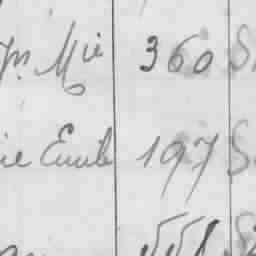 Mie 360 S
ie Emile 197 S
551